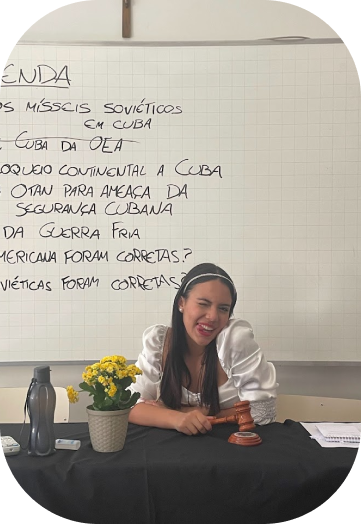 ENDA
OS MÍSSEIS SOVIÉTICOS
EM CUBA
CUBA DA OEA
LOQUEIO CONTINENTAL A CUBA
OTAN PARA AMEAÇA DA
SEGURANÇA CUBANA
DA GUERRA FRIA
MERICANA FORAM CORRETAS?
VIÉTICAS FORAM CORRETAS?